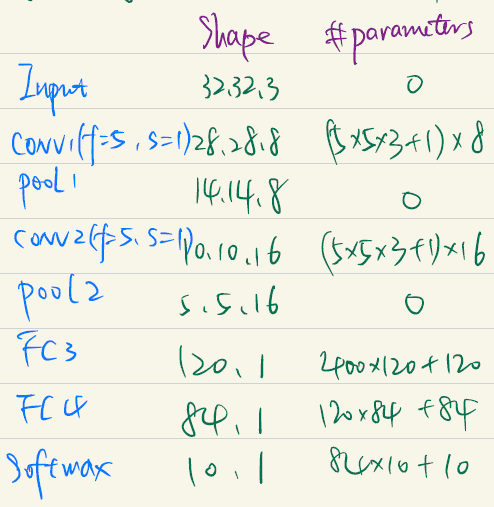 Shape #parameters
Input 32.32.3 0
CONV1(f=5, s=1) 28.28.8 (5×5×3+1)×8
pool1 14.14.8 0
CONV2(f=5, s=1) 10.10.16 (5×5×3+1)×16
pool2 5.5.16 0
FC3 120.1 2400×120+120
FC4 84.1 120×84+84
Softmax 10.1 84×10+10